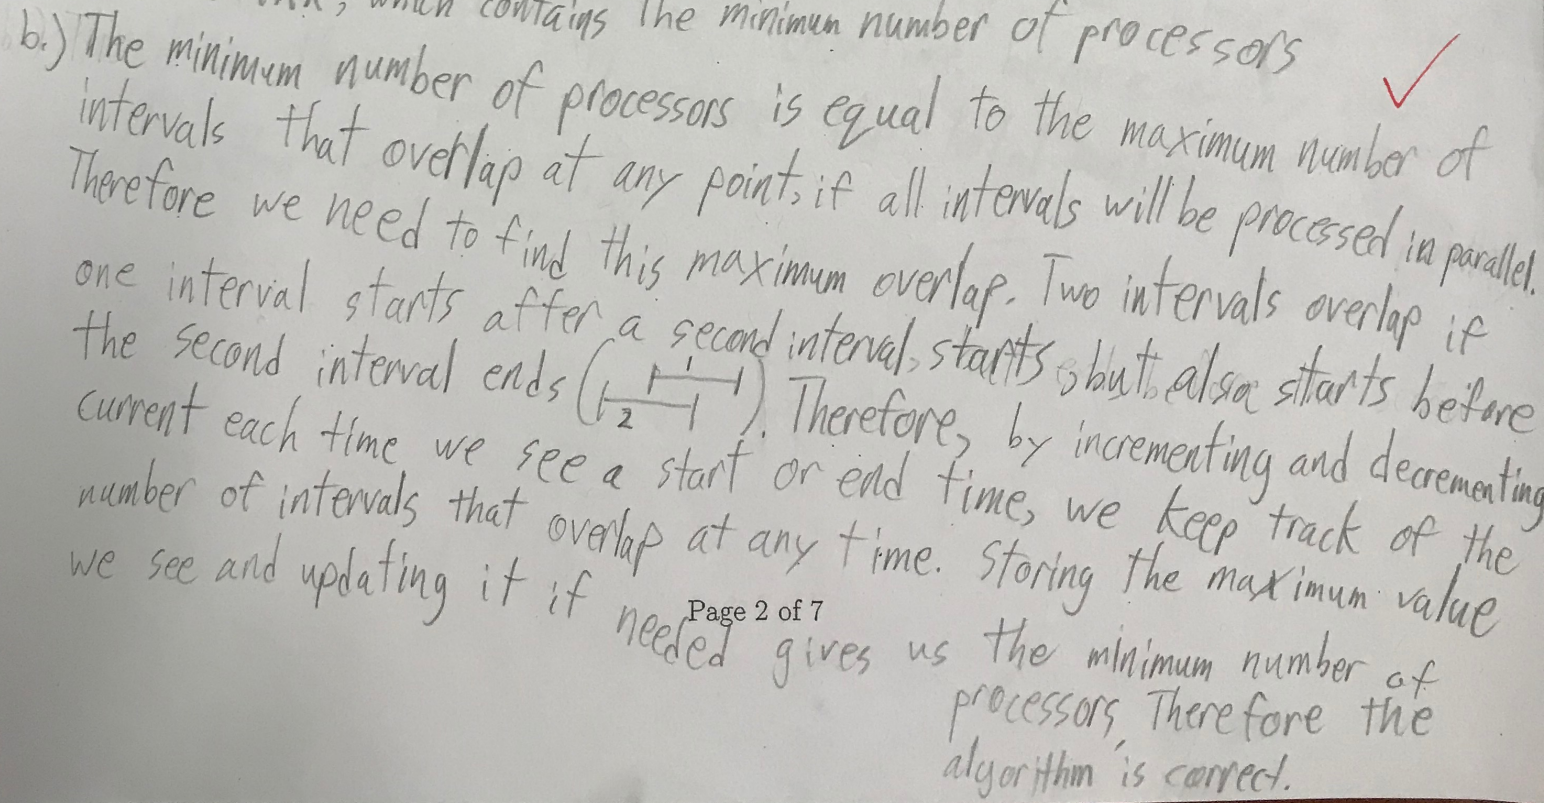 , which contains the minimum number of processors
b.) The minimum number of processors is equal to the maximum number of
intervals that overlap at any point, if all intervals will be processed in parallel.
Therefore we need to find this maximum overlap. Two intervals overlap if
one interval starts after a second interval starts, but also starts before
the second interval ends ( 1 2 ). Therefore, by incrementing and decrementing
current each time we see a start or end time, we keep track of the
number of intervals that overlap at any time. Storing the maximum value
we see and updating it if needed gives us the minimum number of
processors, Therefore the
algorithm is correct.
Page 2 of 7